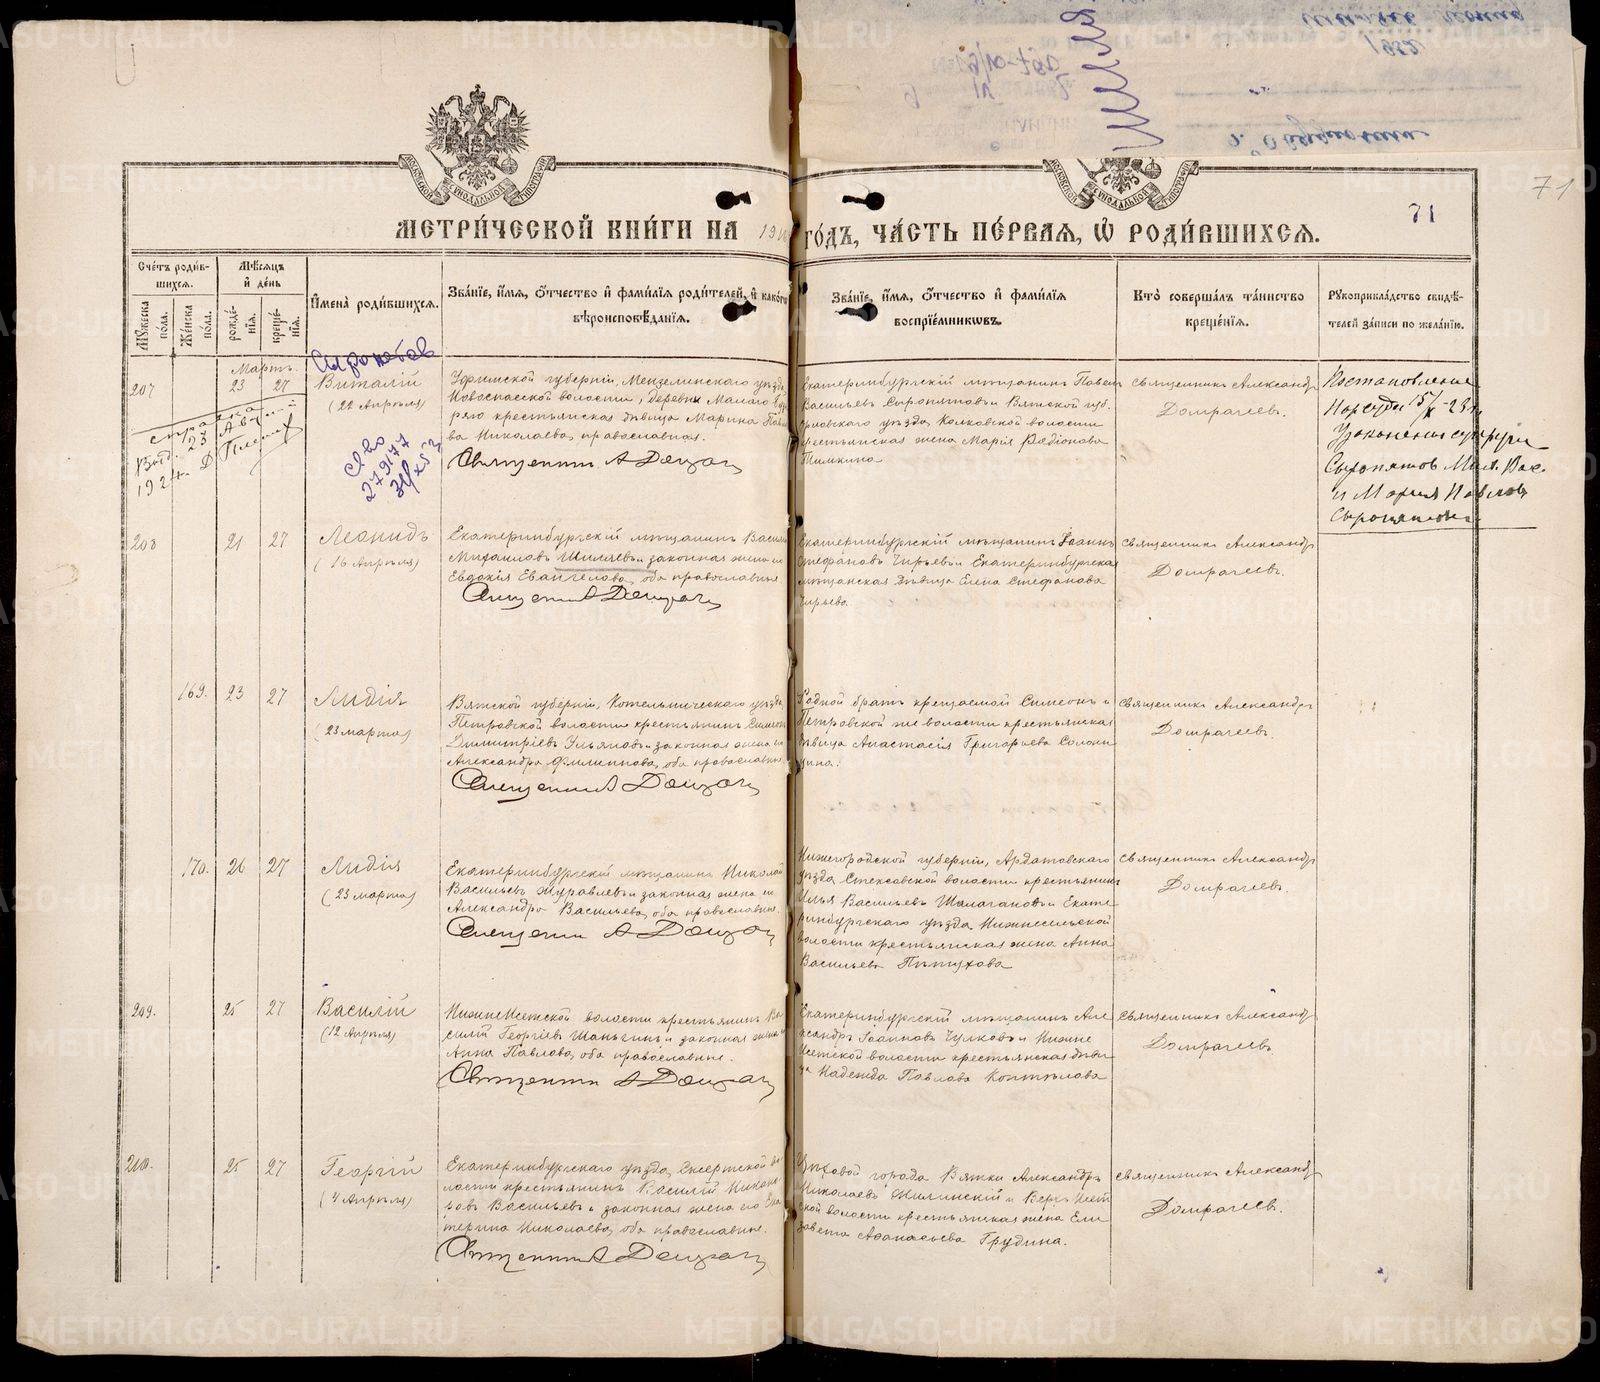 МЕТРИ́ЧЕСКОЙ КНИ́ГИ НА 191
ГО́ДЪ, ЧА́СТЬ ПЕ́РВАЯ, Ѡ РОДИ́ВШИХСЯ.
71
71
Сче́тъ роди́в-
шихся.
Му́жеска по́ла.
Же́нска по́ла.
Мѣ́сяцъ
и́ де́нь
рожде́нїя.
креще́нїя.
И҆мена̀ роди́вшихся.
Зва́нїе, и҆́мя, ѻ҆́тчество и҆ фами́лїя роди́телей, и҆ како́гѡ
вѣроисповѣ́данїя.
Зва́нїе, и҆́мя, ѻ҆́тчество и҆ фами́лїя
воспрїе́мниковъ.
Кто̀ соверша́лъ та́инство
креще́нїя.
Рукоприкла́дство свидѣ́-
телей за́писи по жела́нїю.
Мартъ.
207
23
27
Виталій
(22 Апрѣля)
Уфимской губерніи, Мензелинскаго уѣзда
Новоспасской волости, деревни Малаго
крестьянская дѣвица Марина Пав
ва Николаева, православная.
Екатеринбургскій мѣщанинъ Павелъ
Васильевъ Сыропятовъ и Вятской губ.
Орловскаго уѣзда, волости
крестьянская жена Марія Родіонова
Тимкина
Священникъ Александръ
Домрачевъ.
Постановление
Нарсуда 15/X-23г.
Узаконены супруги
Сыропятов Мих. Вас.
и Мария Павлов
Сыропятова
208
21
27
Леонидъ
(16 Апрѣля)
Екатеринбургскій мѣщанинъ Василій
Михаиловъ Шиляевъ и законная жена его
Евдокія Евангелова, оба православные
Екатеринбургскій мѣщанинъ Іоаннъ
Стефановъ Чирьевъ и Екатеринбургская
мѣщанская дѣвица Елена Стефанова
Чирьева.
Священникъ Александръ
Домрачевъ.
169.
23
27
Лидія
(23 марта)
Вятской губерніи, Котельническаго уѣзда,
Петровской волости крестьянинъ Симеонъ
Димитріевъ Ульяновъ и законная жена его
Александра Филиппова, оба православные
Родной братъ крещаемой Симеонъ и
Петровской же волости крестьянская
дѣвица Анастасія Григорьева Солони
цина.
Священникъ Александръ
Домрачевъ.
170.
26
27
Лидія
(23 марта)
Екатеринбургскій мѣщанинъ Николай
Васильевъ Журавлевъ и законная жена его
Александра Васильева, оба православные.
Нижегородской губерніи, Ардатовскаго
уѣзда Стексовской волости крестьянинъ
Илья Васильевъ Шалагановъ и Екате
ринбургскаго уѣзда Нижнесельской
волости крестьянская жена Анна
Васильева Пѣтухова
Священникъ Александръ
Домрачевъ.
209.
25
27
Василій
(12 Апрѣля)
НижнеИсетской волости крестьянинъ Ва
силій Георгіевъ Шаньгинъ и законная жена его
Анна Павлова, оба православные.
Екатеринбургскій мѣщанинъ Але
ксандръ Іоанновъ Чулковъ и Нижне
Исетской волости крестьянская дѣви
ца Надежда Павлова Коптѣлова
Священникъ Александръ
Домрачевъ
210.
25
27
Георгій
(4 Апрѣля)
Екатеринбургскаго уѣзда, Сысертской во
лости крестьянинъ Василій Никано
ровъ Васильевъ и законная жена его Ека
терина Николаева, оба православные.
Цеховой города Вятки Александръ
Николаевъ Жилинскій и Верхъ Исет
ской волости крестьянская жена Ели
завета Аѳанасьева Грудина.
Священникъ Александръ
Домрачевъ.
METRIKI.GASO-URAL.RU